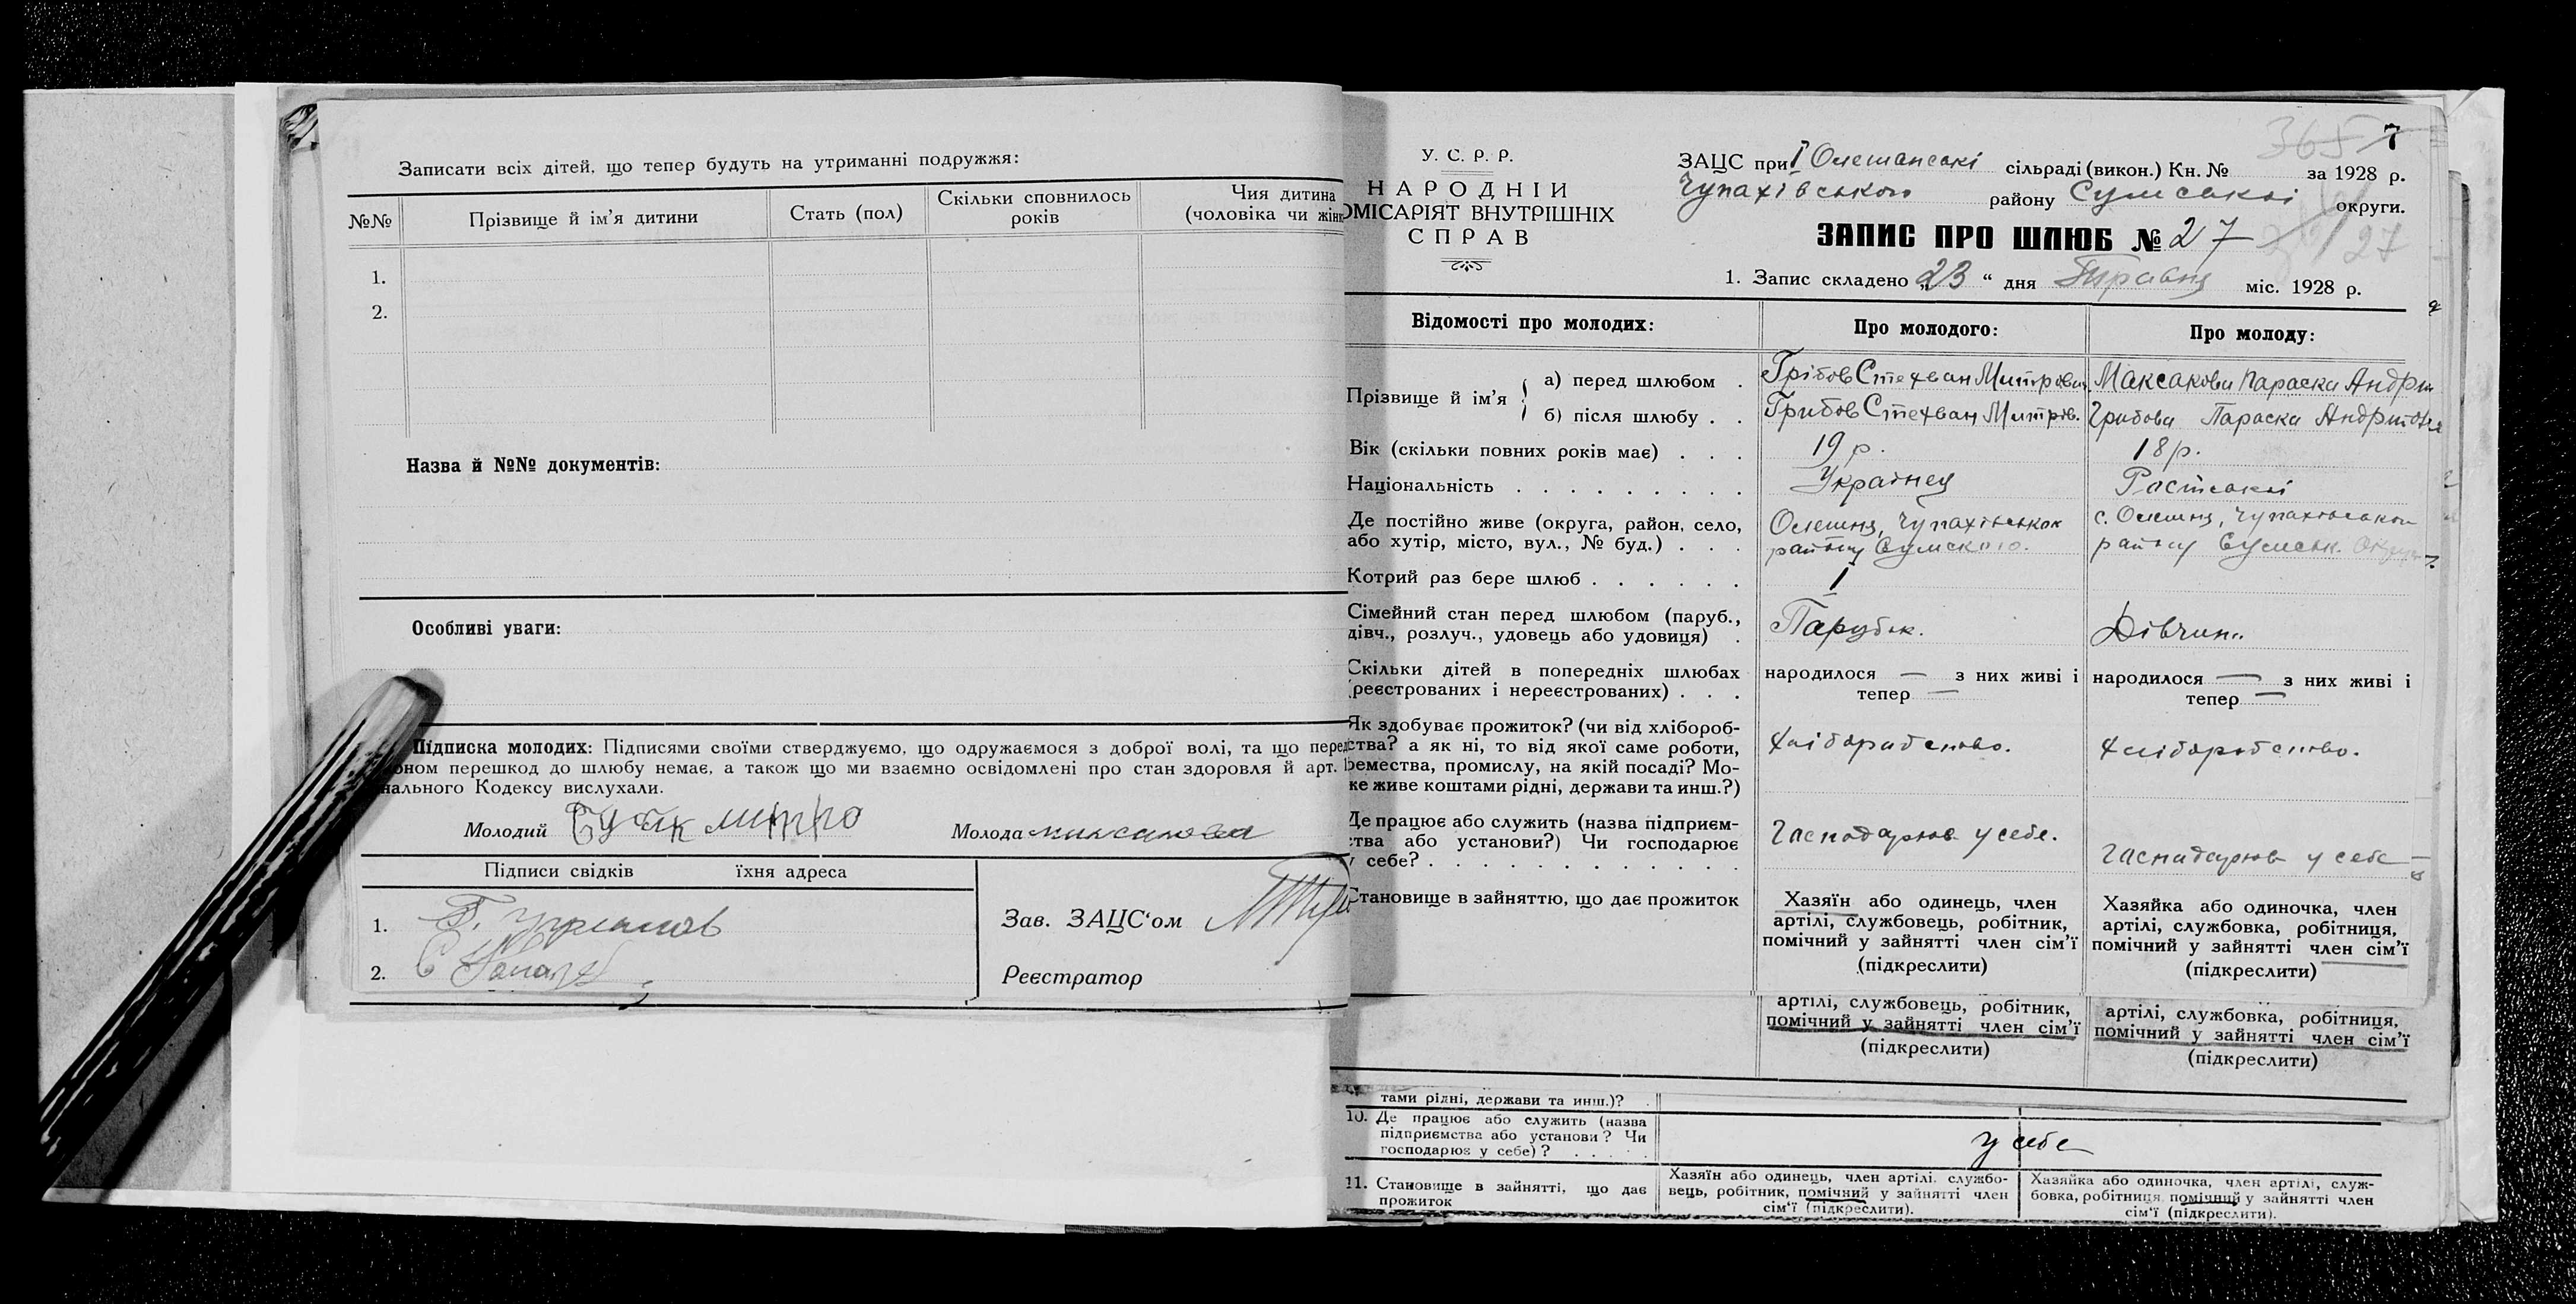 Записати всіх дітей, що тепер будуть на утриманні подружжя:
№№ Прізвище й ім'я дитини Стать (пол) Скільки сповнилось років Чия дитина (чоловіка чи жінк
1.
2.
Назва й №№ документів:
Особливі уваги:
Підписка молодих: Підписями своїми стверджуємо, що одружаємося з доброї волі, та що перед
оном перешкод до шлюбу немає, а також що ми взаємно освідомлені про стан здоровля й арт.
нального Кодексу вислухали.
Молодий Молода максакова
Підписи свідків їхня адреса
1.
2.
Зав. ЗАЦС'ом
Реєстратор
У. С. Р. Р.
НАРОДНІЙ
ОМІСАРІЯТ ВНУТРІШНІХ
СПРАВ
365 7
ЗАЦС при І Олешанські сільраді (викон.) Кн. № за 1928 р.
Чупахівського району Сумськві округи.
ЗАПИС ПРО ШЛЮБ № 27
27
1. Запис складено „23" дня Травня міс. 1928 р.
Відомості про молодих: Про молодого: Про молоду:
Прізвище й ім'я
а) перед шлюбом . Грібов Стехван Митрович Максакова Параска Андри
б) після шлюбу . . Грибов Стехван Митрів. Грибова Параска Андритовна
Вік (скільки повних років має) . . . 19 р. 18 р.
Національність . . . . . . . . . Украінец
Де постійно живе (округа, район, село, Олешня, Чупахівськок с. Олешня, Чупахівськаи
або хутір, місто, вул., № буд.) . . . району Сумского. району Сумськ. Округи
Котрий раз бере шлюб . . . . . . 1
Сімейний стан перед шлюбом (паруб.,
дівч., розлуч., удовець або удовиця) . Парубок. Дівчина
Скільки дітей в попередніх шлюбах народилося — з них живі і народилося — з них живі і
(реєстрованих і нереєстрованих) . . . тепер — тепер —
Як здобуває прожиток? (чи від хлібороб-
ства? а як ні, то від якої саме роботи, хліборабство. хліборобство.
ремества, промислу, на якій посаді? Мо-
же живе коштами рідні, держави та инш.?)
Де працює або служить (назва підприєм-
тва або установи?) Чи господарює Гасподарює у себе. Гасподарює у себе
у себе? . . . . . . . .
Становище в зайняттю, що дає прожиток
Хазяїн або одинець, член
артілі, службовець, робітник,
помічний у зайнятті член сім'ї
(підкреслити)
Хазяйка або одиночка, член
артілі, службовка, робітниця,
помічний у зайнятті член сім'ї
(підкреслити)
артілі, службовець, робітник,
помічний у зайнятті член сім'ї
(підкреслити)
артілі, службовка, робітниця,
помічний у зайнятті член сім'ї
(підкреслити)
тами рідні, держави та инш.)?
10. Де працює або служить (назва
підприємства або установи? Чи у себе
господарює у себе)? . . . . .
11. Становище в зайнятті, що дає
прожиток
Хазяїн або одинець, член артілі, службо-
вець, робітник, помічний у зайнятті член
сім'ї (підкреслити).
Хазяйка або одиночка, член артілі, служ-
бовка, робітниця, помічний у зайнятті член
сім'ї (підкреслити).